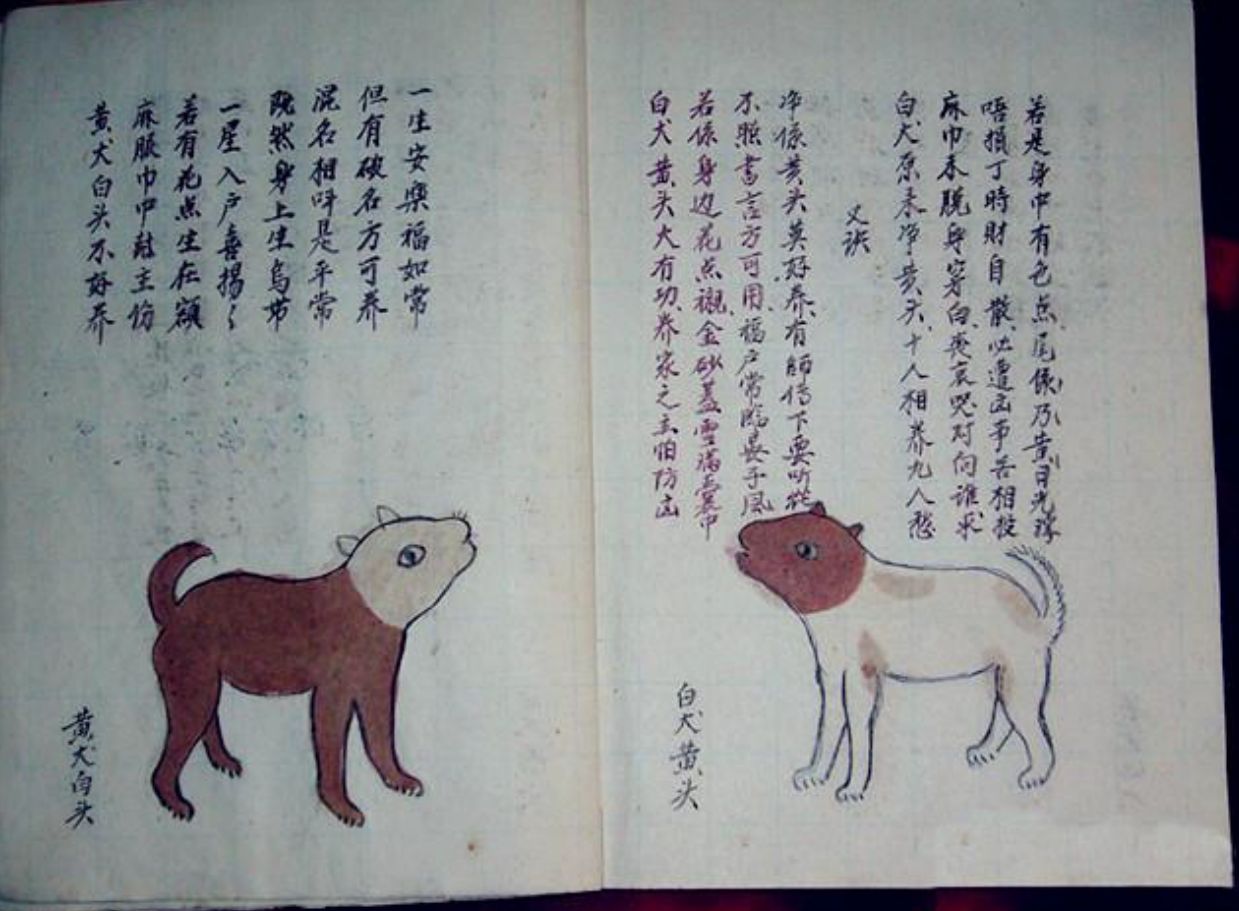 黄犬白头不好养
麻服巾巾尅主伤
若有花点生在额
一星入户喜揚々
既然身上生乌节
混名相呼是平常
但有破名方可养
一生安樂福如常
黄犬白头
白犬黄头大有功养家之主怕防凶
若係身边花点襯金砂蓋雪满囊中
不照書言方可用福户常临晏子风
净係黄头莫好养有師傅下要听從
又訣
白犬原来净黄头十人相养九人愁
麻巾未脱身穿白喪哀哭对向谁求
唔損丁時財自散必遭凶事苦相投
若是身中有色点尾係乃黄目光球
白犬黄头